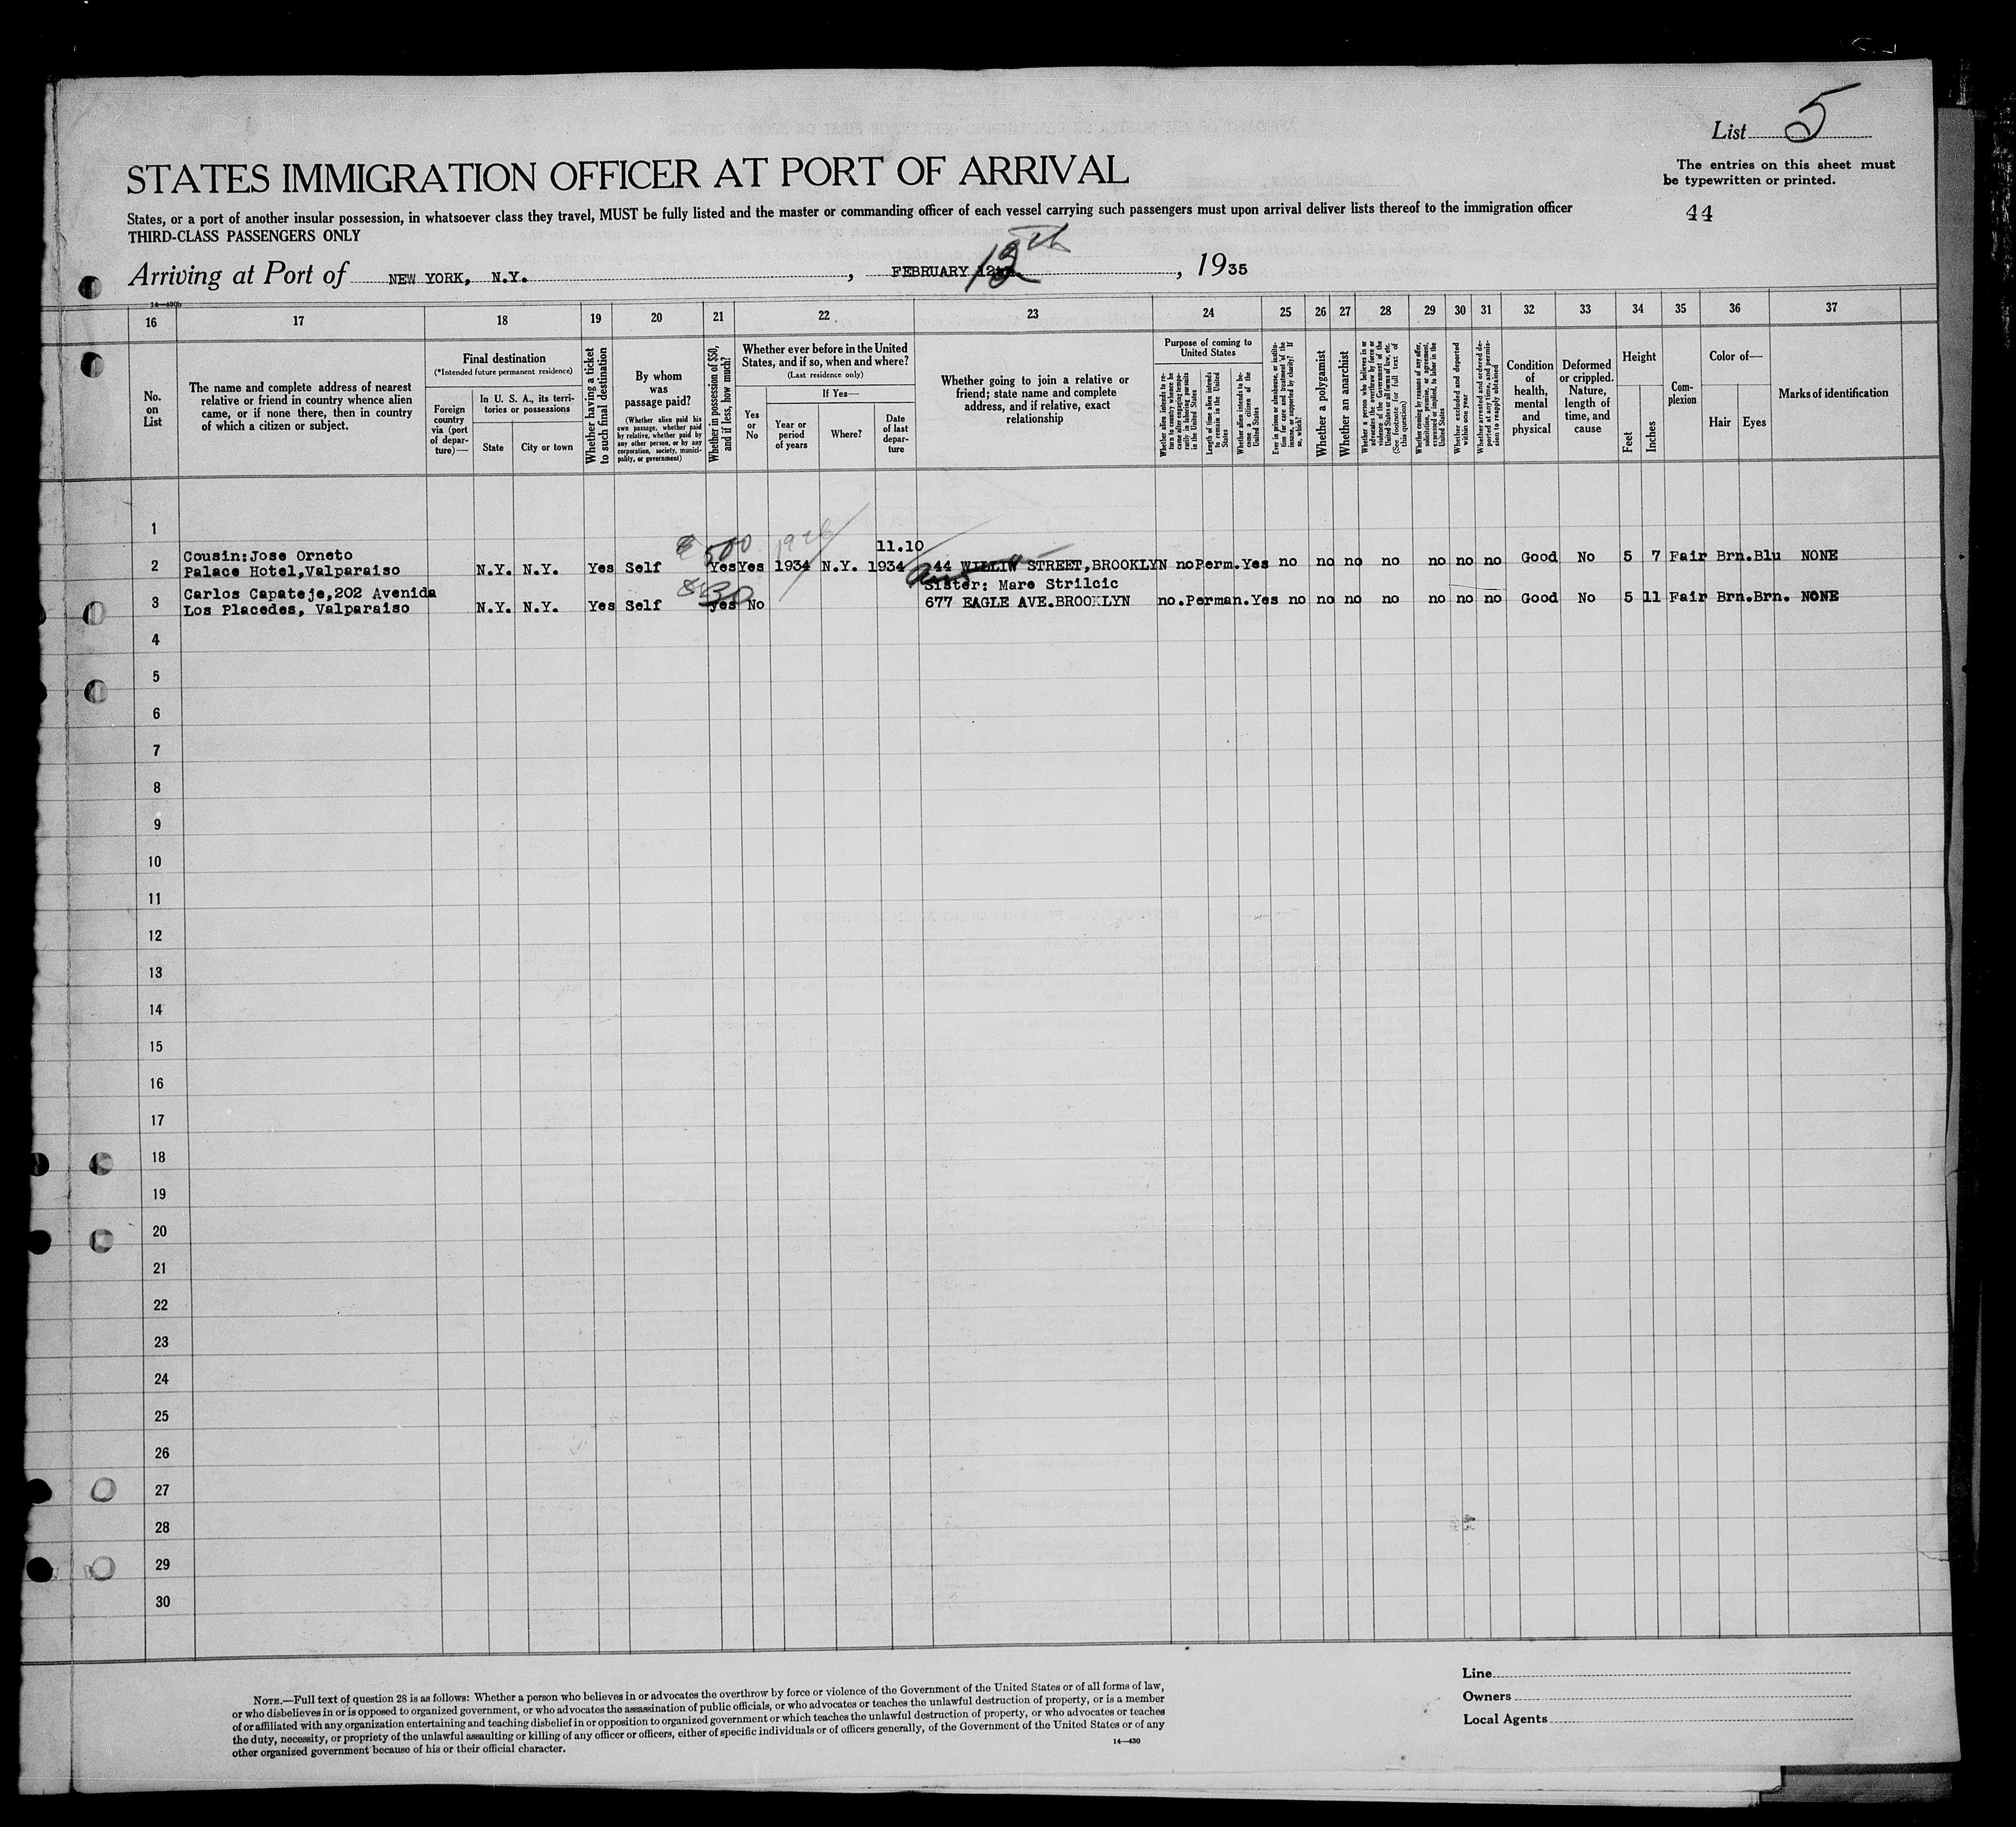 List 5
STATES IMMIGRATION OFFICER AT PORT OF ARRIVAL
The entries on this sheet must
be typewritten or printed.
44
States, or a port of another insular possession, in whatsoever class they travel, MUST be fully listed and the master or commanding officer of each vessel carrying such passengers must upon arrival deliver lists thereof to the immigration officer
THIRD-CLASS PASSENGERS ONLY
13th
Arriving at Port of NEW YORK, N.Y. , FEBRUARY , 1935
14—430b
16 17 18 19 20 21 22 23 24 25 26 27 28 29 30 31 32 33 34 35 36 37
No.
on
List
The name and complete address of nearest
relative or friend in country whence alien
came, or if none there, then in country
of which a citizen or subject.
Final destination
(*Intended future permanent residence)
Foreign
country
via (port
of depar-
ture)—
In U. S. A., its terri-
tories or possessions
State
City or town
Whether having a ticket
to such final destination
By whom
was
passage paid?
(Whether alien paid his
own passage, whether paid
by relative, whether paid by
any other person, or by any
corporation, society, munici-
pality, or government)
Whether in possession of $50,
and if less, how much?
Whether ever before in the United
States, and if so, when and where?
(Last residence only)
Yes
or
No
If Yes—
Year or
period
of years
Where?
Date
of last
depar-
ture
Whether going to join a relative or
friend; state name and complete
address, and if relative, exact
relationship
Purpose of coming to
United States
Whether alien intends to re-
turn to country whence he
came after engaging tempo-
rarily in laboring pursuits
in the United States
Length of time alien intends
to remain in the United
States
Whether alien intends to be-
come a citizen of the
United States
Ever in prison or almshouse, or institu-
tion for care and treatment of the
insane, or supported by charity? If
so, which?
Whether a polygamist
Whether an anarchist
Whether a person who believes in or
advocates the overthrow by force or
violence of the Government of the
United States or all forms of law, etc.
(See footnote for full text of
this question)
Whether coming by reason of any offer,
solicitation, promise, or agreement,
expressed or implied, to labor in the
United States
Whether excluded and deported
within one year
Whether arrested and ordered de-
ported at any time, and permis-
sion to reapply obtained
Condition
of
health,
mental
and
physical
Deformed
or crippled.
Nature,
length of
time, and
cause
Height
Feet
Inches
Com-
plexion
Color of—
Hair
Eyes
Marks of identification
1
500 11.10
Cousin:Jose Orneto
2 Palace Hotel,Valparaiso N.Y. N.Y. Yes Self Yes Yes 1934 N.Y. 1934 44 STREET,BROOKLYN no Perm. Yes no no no no no no no Good No 5 7 Fair Brn. Blu NONE
Carlos Capateje,202 Avenida $30 Sister: Mare Strilcic
3 Los Placedes, Valparaiso N.Y. N.Y. Yes Self Yes No 677 EAGLE AVE.BROOKLYN no. Perman. Yes no no no no no no no Good No 5 11 Fair Brn. Brn. NONE
4
5
6
7
8
9
10
11
12
13
14
15
16
17
18
19
20
21
22
23
24
25
26
27
28
29
30
NOTE.—Full text of question 28 is as follows: Whether a person who believes in or advocates the overthrow by force or violence of the Government of the United States or of all forms of law,
or who disbelieves in or is opposed to organized government, or who advocates the assassination of public officials, or who advocates or teaches the unlawful destruction of property, or is a member
of or affiliated with any organization entertaining and teaching disbelief in or opposition to organized government or which teaches the unlawful destruction of property, or who advocates or teaches
the duty, necessity, or propriety of the unlawful assaulting or killing of any officer or officers, either of specific individuals or of officers generally, of the Government of the United States or of any
other organized government because of his or their official character.
14—430
Line
Owners
Local Agents